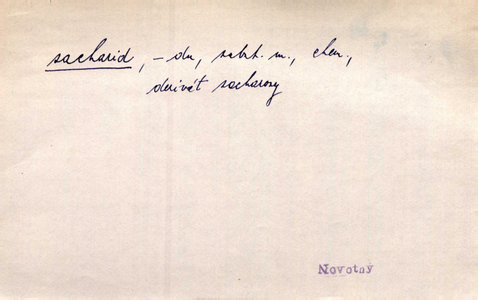 sacharid, -du, subst. m., chem.,
derivát sacharosy
Novotný